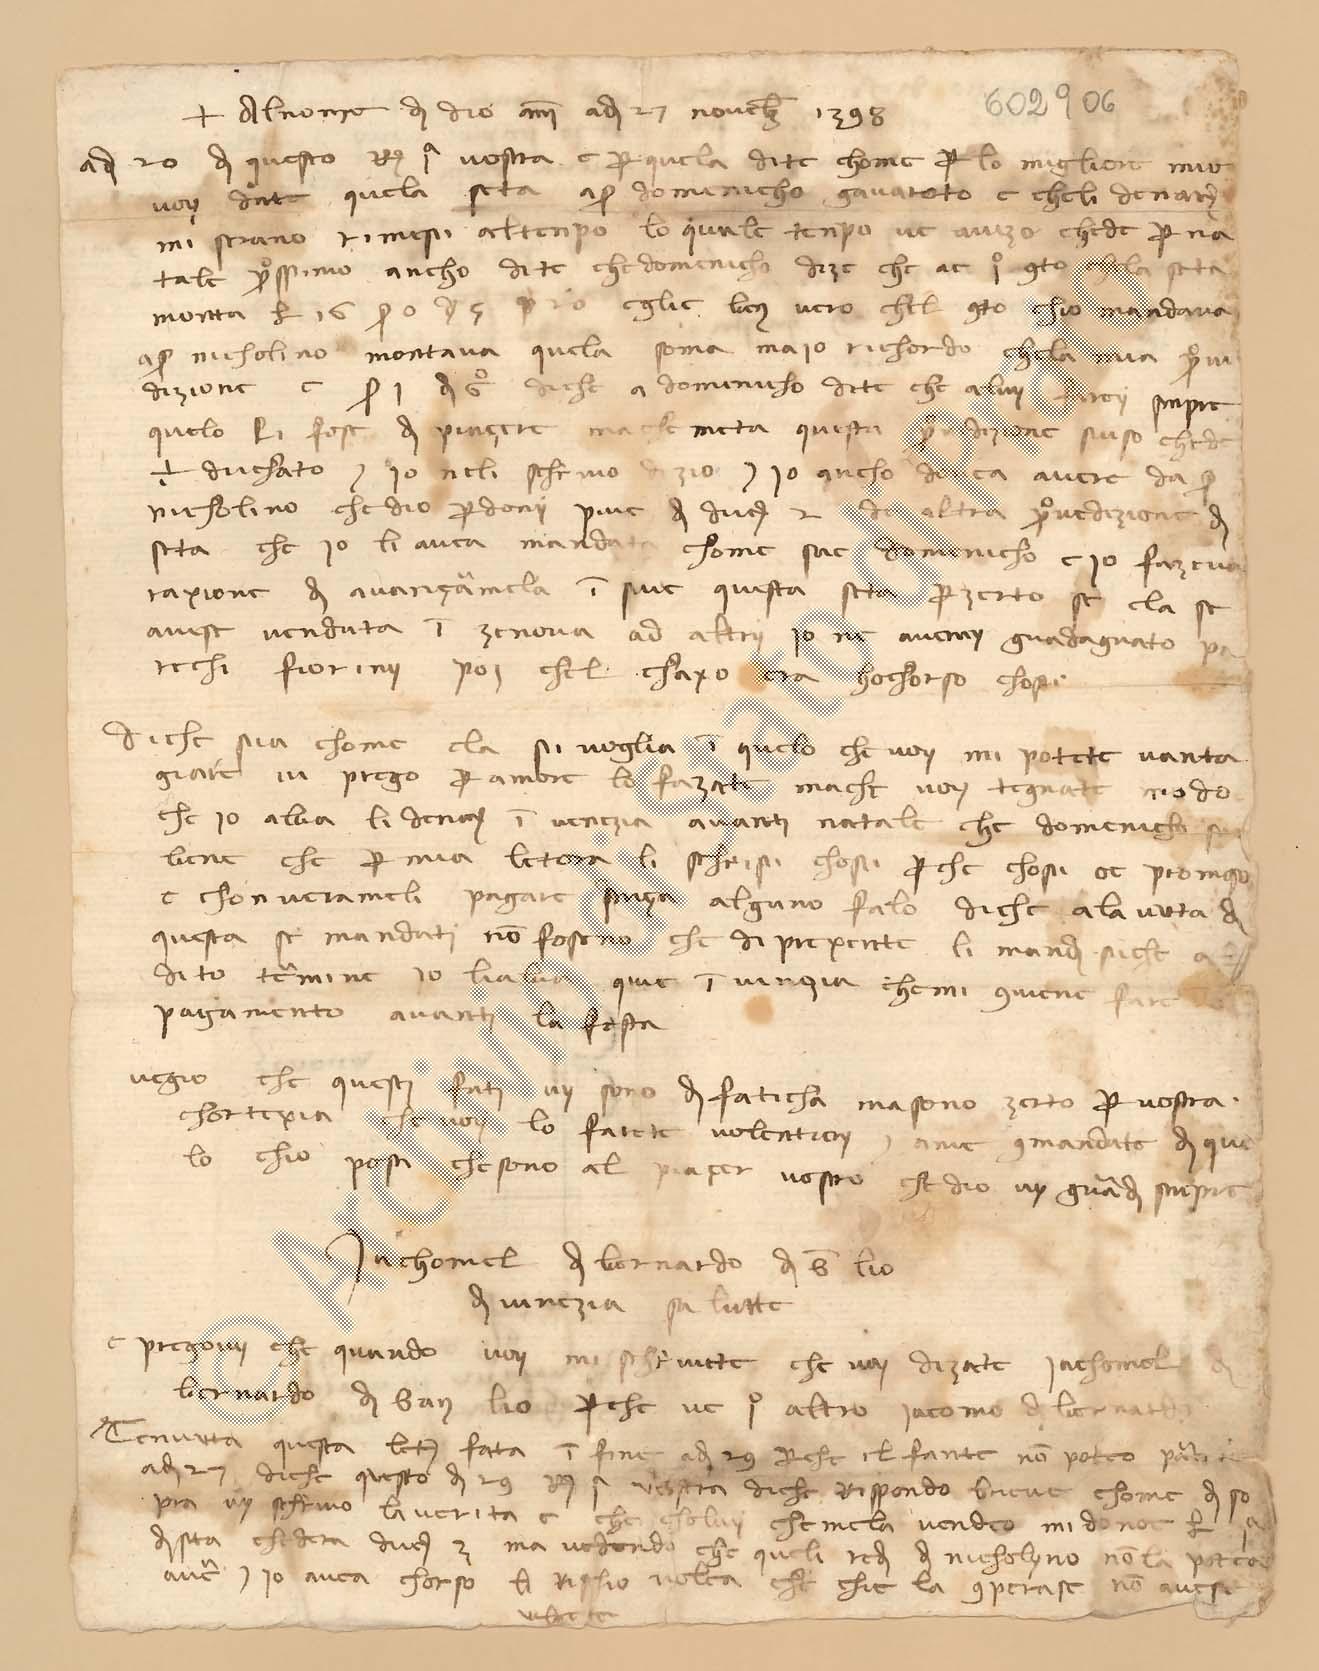 + Al nome di dio am adi 27 novenb 1398
602906
adi 20 di questo R 1a vostra e per quela dite chome per lo migliore mio
voy date quela seta a domenicho gavaroto e cheli denary
mi serano rimesii al tenpo lo quale tenpo ve avizo ched e per na
tale prossimo ancho dite che domenicho dize che ae 1o gto chela seta
monta 16 0 5 eglie ben vero chel gto chio mandava
a nicholino montava quela soma ma io richordo chela mia provi
dizione e 1 di go diche a domenicho dite che a luy sempre
quelo li fose di piaçere mache meta questa provedizione suso ched e
+ duchato io neli schrivo dizio io ancho doveva avere da
nicholino che dio perdony piue di duc 2 de altra provedizione di
seta che io li avea mandata chome sae domenicho e io fazeva
raxione di avançarmela i sue questa seta per zerto se ela se
avese venduta i zenova ad altry io ne averey guadagnato pa
rechi fioriny poy chel chaxo era hochorso chosi
diche sia chome ela si voglia i quelo che voy mi potete vanta
giare vi prego per amore lo fazate mache voy tegnate modo
che io abia li denary i venezia avanti natale che domenicho sa
bene che per mia letera li schrisii chosii perche chosii oe promeso
e chonverameli pagare sença alguno falo diche ala vuta di
questa se mandati no foseno che di prexente li mandi siche a
dito termine io li abia quie i vinezia chemi gviene fare
pagamento avanti la festa
vegio che questi fati vy sono di faticha ma sono zerto per vostra
chortexia che voy lo farete volentiery a me gmandate di que
lo chio posa che sono al piaçer vostro che dio vy guardi senpre
Jachomel di bernardo di S lio
di vinezia salutte
e pregovy che quando voy mi schrivete che voy dizate Jachomel di
bernardo di San lio perche ve 1o altro iacomo di bernardo
Tenutta questa leta fata i fine adi 29 perche il fante no poteo partire
adi 27 diche questo di 29 R 1a vostra diche rispondo brieve chome di so
pra vy schrivo la verita e che cholui chemela vendeo mi donoe
di seta ched era duc 3 ma vedendo che queli redi di nicholyno no la poteva
aver io avea chorso li rischio volea che chie la gperase no avese